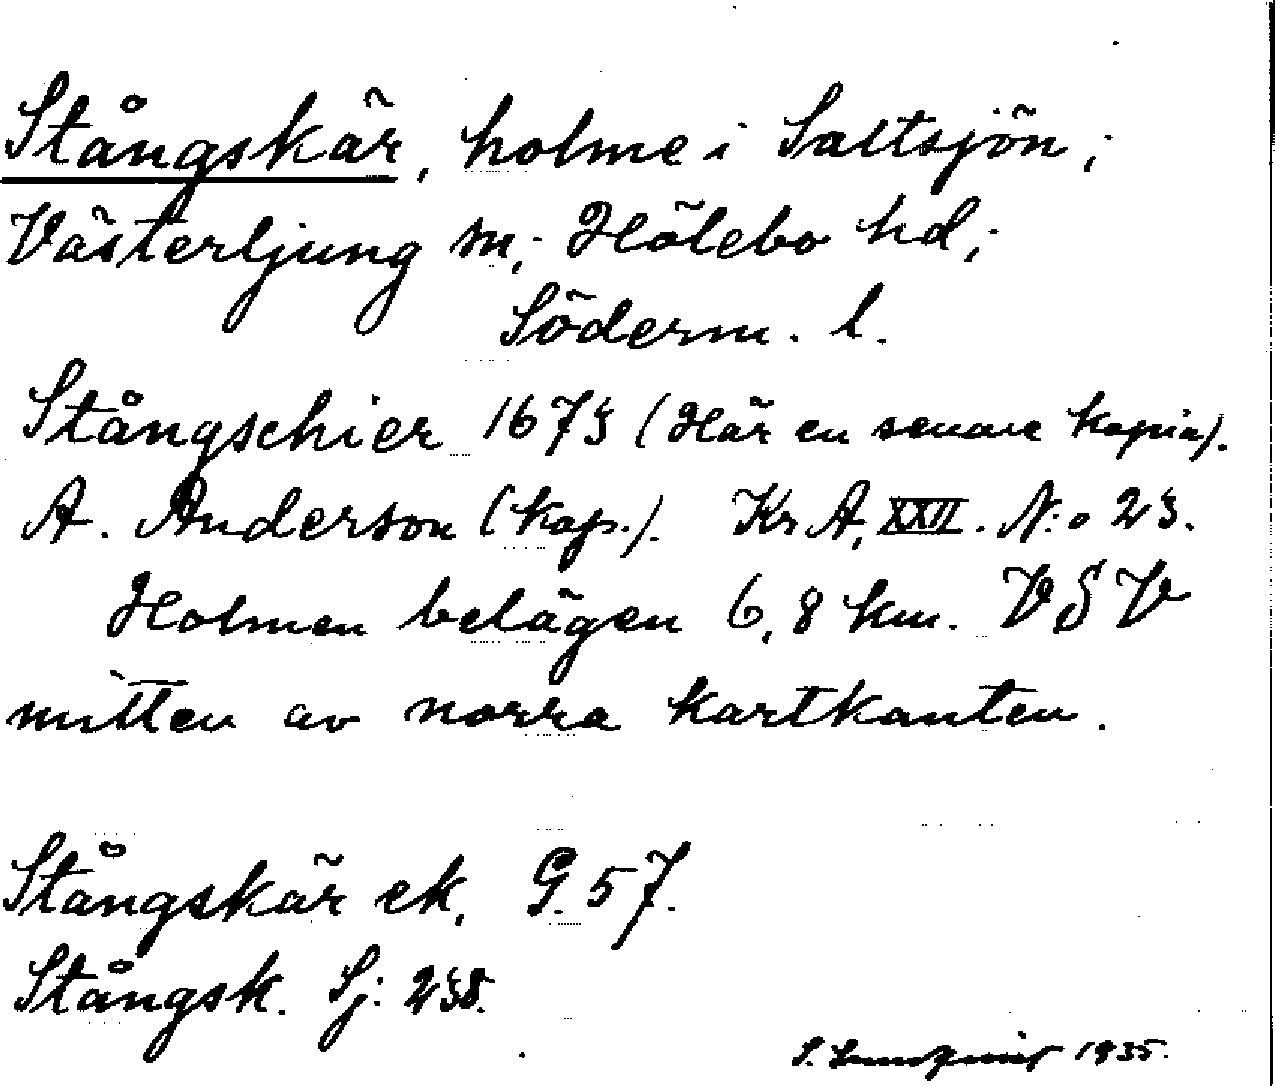 Stångskär, holme i Saltsjön;
Västerljung sn; Hölebo hd;
Söderm. l.
Stångschier 1673 (Här en senare kopia).
A. Anderson (kop.). Kr A, XXII. N:o 23.
Holmen belägen 6,8 km. VSV
mitten av norra kartkanten.
Stångskär ek. G. 57.
Stångsk. Sj: 238.
S. Lundquist 1935.